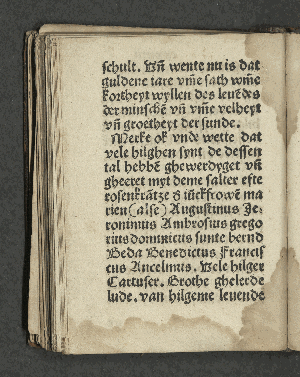 schult. Vn̄ wente nu is dat
guldene iare vm̄e sath wm̄e
kortheyt wyllen des leuēdes
der minschē vn̄ vm̄e velheyt
vn̄ groetheyt der sunde.
Merke ok vnde wette dat
vele hilghen synt de dessen
tal hebbē ghewerdyget vn̄
gheeret myt deme salter efte
rosenkrātze d iūckfrowē ma
rien (alse) Augustinus Je⸗
ronimus Ambrosius grego
rius dominicus sunte bernd
Beda Benedictus Francis
cus Ancelmus. Vele hilger
Cartuser. Grothe ghelerde
lude. van hilgeme leuende